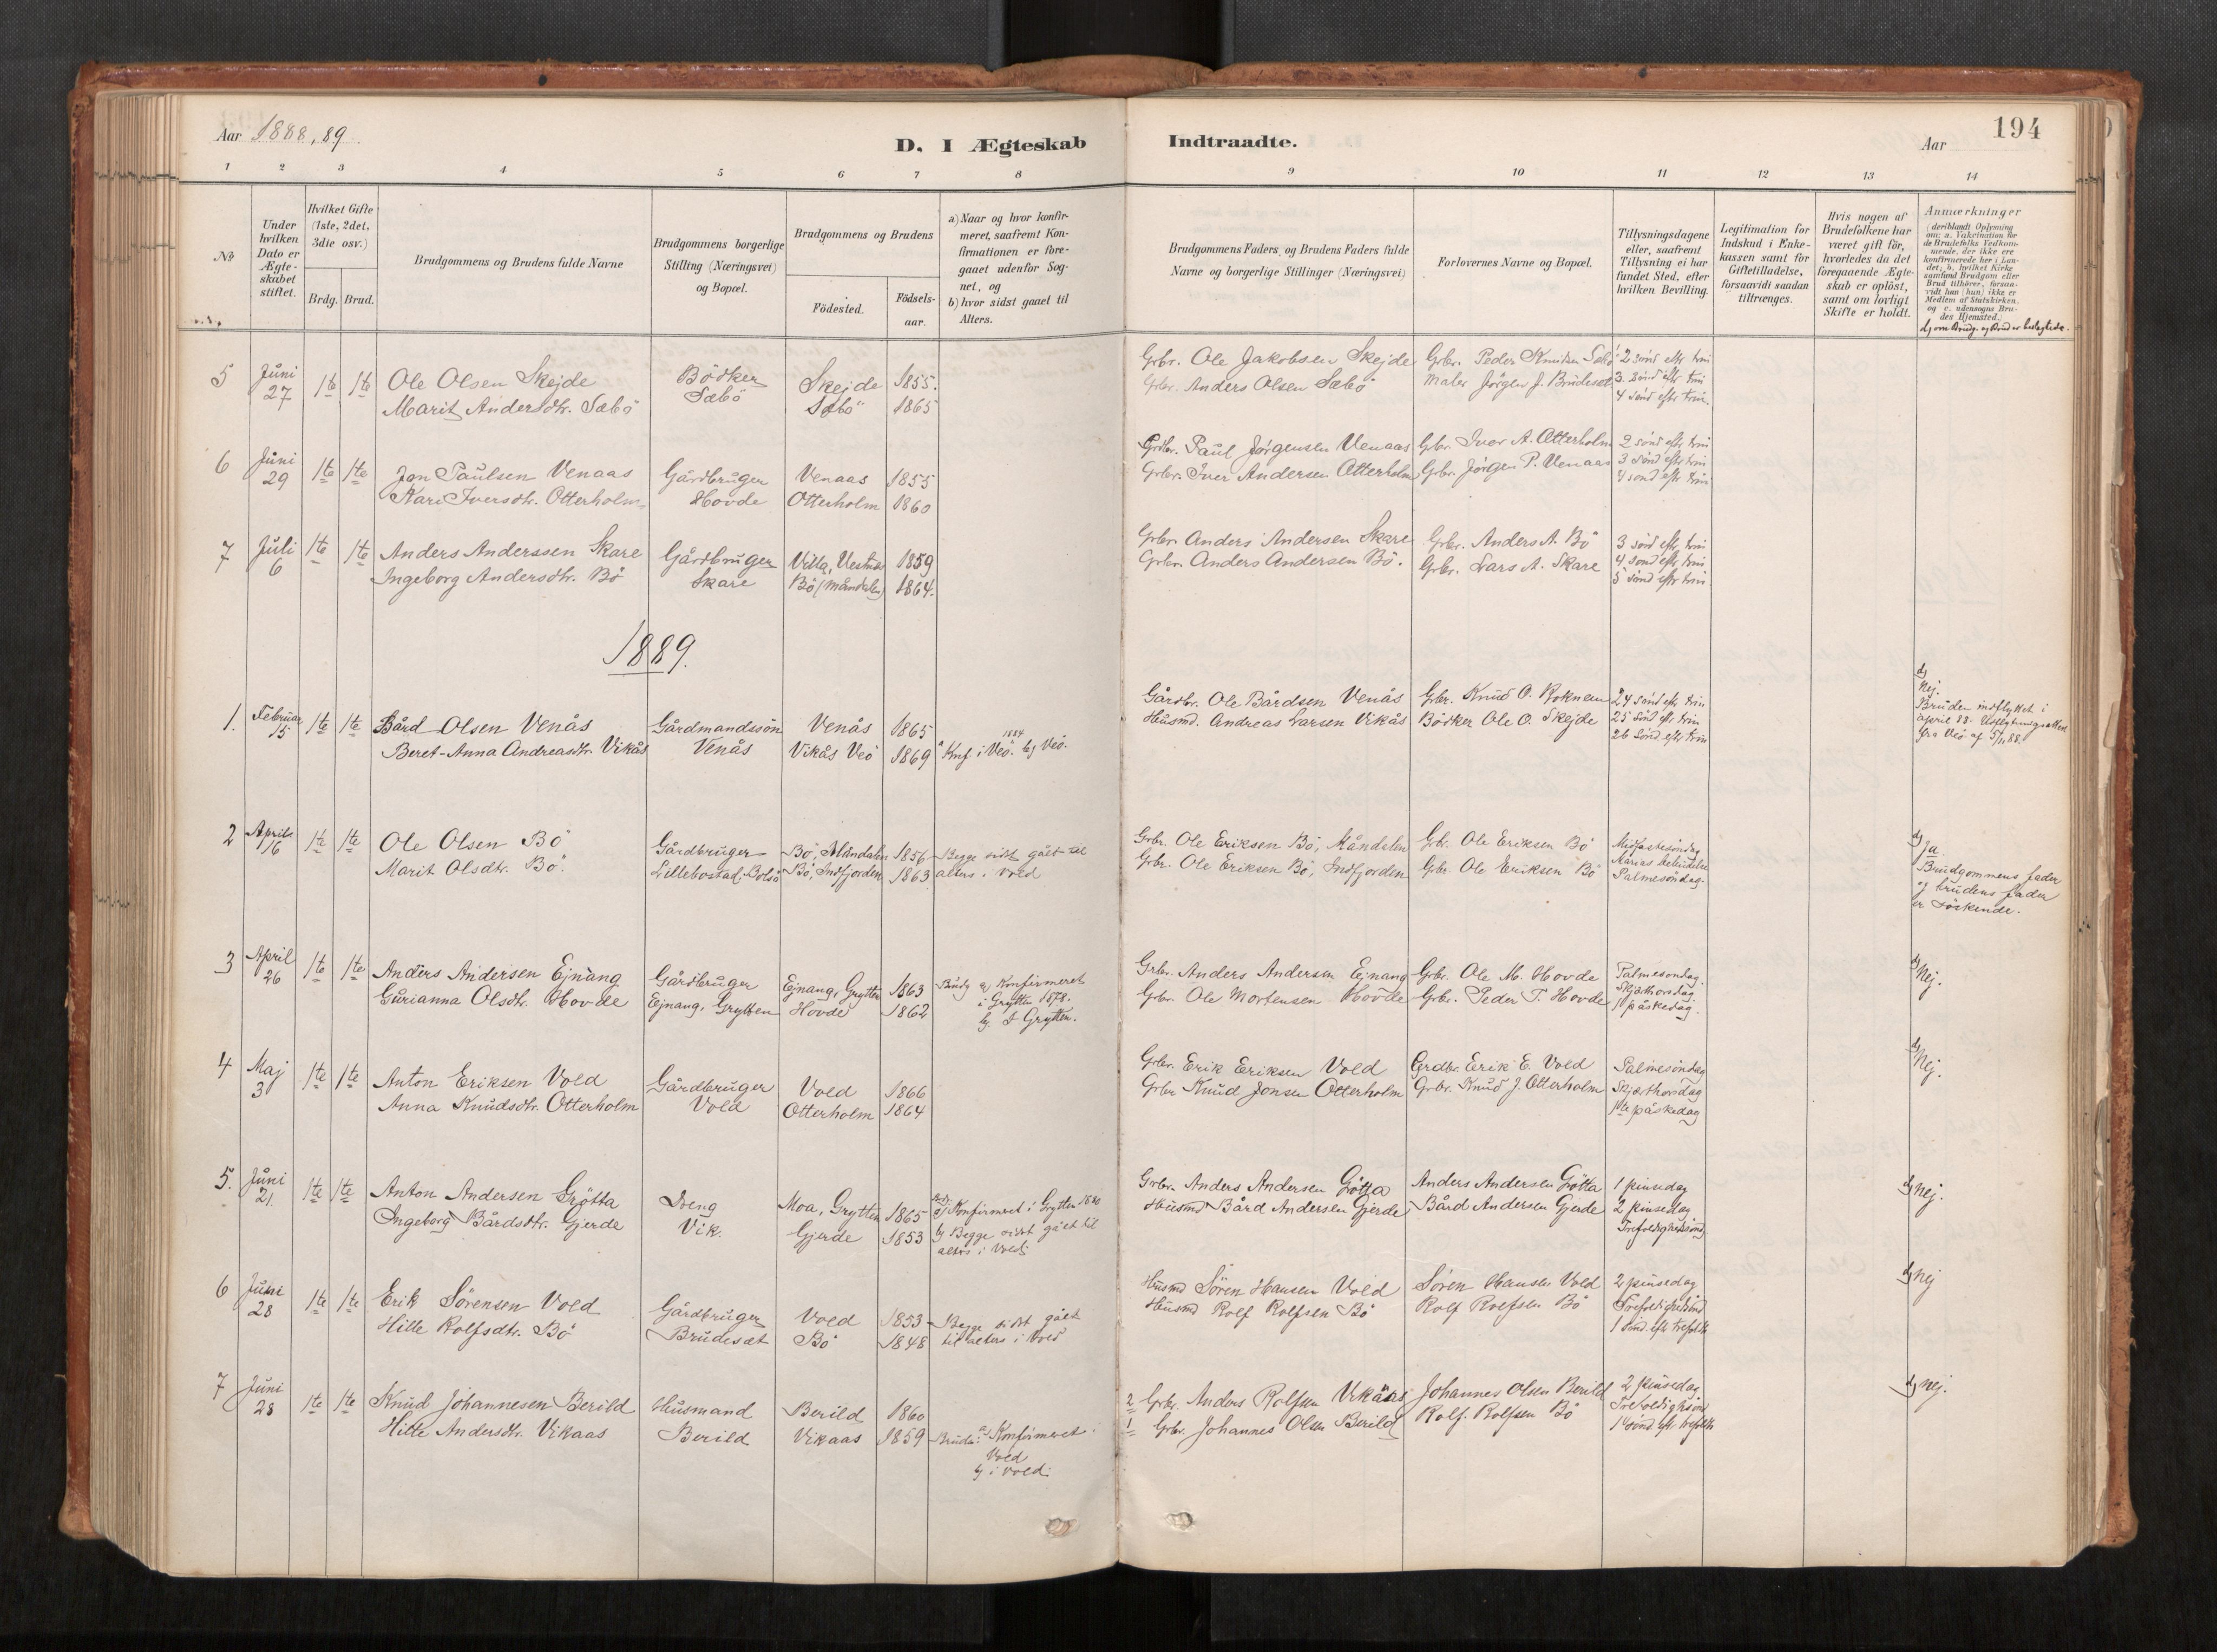 Aar 1888, 89
D. I Ægteskab Indtraadte.
Aar
194
1 2 3 4 5 6 7 8 9 10 11 12 13 14
No
Under hvilken Dato er Ægteskabet stiftet.
Hvilket Gifte (1ste, 2det, 3die osv.)
Brdg. Brud.
Brudgommens og Brudens fulde Navne
Brudgommens borgerlige Stilling (Næringsvei) og Bopæl.
Brudgommens og Brudens
Födested.
Födsels-aar.
a) Naar og hvor konfirmeret, saafremt Konfirmationen er foregaaet udenfor Sognet, og
b) hvor sidst gaaet til Alters.
Brudgommens Faders og Brudens Faders fulde Navne og borgerlige Stillinger (Næringsvei)
Forlovernes Navne og Bopæl.
Tillysningsdagene eller, saafremt Tillysning ei har fundet Sted, efter hvilken Bevilling.
Legitimation for Indskud i Enkekassen samt for Giftetilladelse, forsaavidt saadan tiltrænges.
Hvis nogen af Brudefolkene har været gift för, hvorledes da det foregaaende Ægteskab er oplöst, samt om lovligt Skifte er holdt.
Anmærkninger
(deriblandt Oplysning om: a. Vakcination for de Brudefolks Vedkommende, der ikke ere konfirmerede her i Landet; b. hvilket Kirkesamfund Brudgom eller Brud tilhører, forsaavidt han (hun) ikke er Medlem af Statskirken. og c. udensogns Brudes Hjemsted.)
d) om Brudg. og Brud er beslægtede.
5 Juni 27 1te 1te Ole Olsen Skejde Bödker Skejde 1855. Grbr. Ole Jakobsen Skejde Grbr. Peder Knudsen Sæbö 2 sönd eftr trin
Marit Andersdtr. Sæbö Sæbö Sæbö 1865 Grbr. Anders Olsen Sæbö Maler Jörgen J. Brudeset 3 sönd eftr trin
4 sönd eftr trin.
6 Juni 29 1te 1te Jon Paulsen Venaas Gårdbruger Venaas 1855 Grdbr. Paul Jörgensen Venaas Grbr. Iver A. Otterholm 2 sönd eftr trin
Kari Iversdtr. Otterholm Hovde Otterholm 1860 Grbr. Iver Andersen Otterholm Grbr. Jörgen P. Venaas 3 sönd eftr trin
4 sönd eftr trin
7 Juli 6 1te 1te Anders Anderssen Skare Gårdbruger Villa, Vestnes 1859 Grbr. Anders Andersen Skare Grbr. Anders A. Bö 3 sönd eftr trin
Ingeborg Andersdtr. Bö Skare Bö (Måndalen) 1864. Grbr. Anders Andersen Bö. Grbr. Lars A. Skare 4 sönd eftr trin
5 sönd eftr trin
1889.
1. Februar 15 1te 1te Bård Olsen Venås Gårdmandssön Venås 1865 Gårdbr. Ole Bårdsen Venås Grbr. Knud O. 24 sönd eftr trin d) Nej.
Beret-Anna Andreasdtr. Vikås Venås Vikås Veö 1869 a Knf i Veö. 1884 b) Veö. Husmd. Andreas Larsen Vikås Bödker Ole O. Skejde 25 sönd eftr trin
26 sönd eftr trin
Bruden indflyttet i
april 88. Udflytningsattest
fra Veö af 5/11 88.
2 April 16 1te 1te Ole Olsen Bö Gårdbruger Bö, Måndalen 1856 Begge sidst gået til Grbr. Ole Eriksen Bö, Måndalen Grbr. Ole Eriksen Bö Midfastesöndag d) Ja.
Marit Olsdtr. Bö. Lillebostad, Bolsö Bö, Indfjorden 1863 alters i Vold Grbr. Ole Eriksen Bö, Indfjorden Grbr. Ole Eriksen Bö Marias bebudelse
Palmesöndag.
Brudgommens fader
og brudens fader
er söskende.
3 April 26 1te 1te Anders Andersen Ejnang Gårdbruger Ejnang, Grytten 1863 Brudg a) Konfirmeret Grbr. Anders Andersen Ejnang Grbr. Ole M. Hovde Palmesöndag. d) Nej.
Gurianna Olsdtr. Hovde Ejnang, Grytten Hovde 1862 i Grytten 1878. Grbr. Ole Mortensen Hovde Grbr. Peder T. Hovde Skjærthorsdag
b) I Grytten. 1 påskedag.
4 Maj 3 1te 1te Anton Eriksen Vold Gårdbruger Vold 1866 Grbr. Erik Eriksen Vold Grdbr. Erik E. Vold Palmesöndag d) Nej.
Anna Knudsdtr. Otterholm Vold Otterholm 1864 Grbr Knud Jonsen Otterholm Grbr. Knud J. Otterholm Skjærthorsdag
1te påskedag
5. Juni 21. 1te 1te Anton Andersen Grötta Dreng Moa, Grytten 1865 Brdg. a) Konfirmeret i Grytten 1880 Grbr. Anders Andersen Grötta Anders Andersen Grötta 1 pinsedag d) nej.
Ingeborg Bårdsdtr. Gjerde Vik. Gjerde 1853 b) Begge sidst gået til Husmd Bård Andersen Gjerde, Bård Andersen Gjerde 2 pinsedag
alters i Vold. Trefoldighedssönd
6 Juni 28 1te 1te Erik Sörensen Vold Gårdbruger Vold 1853 Begge sidst gået Husmd Sören Hansen Vold Sören Hansen Vold 2 pinsedag d) nej
Hille Rolfsdtr. Bö Brudesæt Bö 1848 til alters i Vold Husmd Rolf Rolfsen Bö Rolf Rolfsen Bö Trefoldighedsönd
1 sönd. eftr trefoldh
7 Juni 28 1te 1te Knud Johannesen Berild Husmand Berild 1860 2 Grbr. Anders Rolfsen Vikaas Johannes Olsen Berild 2 pinsedag d) nej.
Hille Andersdtr. Vikaas Berild Vikaas 1859 Brudens a) Konfirmeret i 1 Grbr. Johannes Olsen Berild Rolf. Rolfsen Bö Trefoldighsönd
Vold 1 sönd eftr trefoldh
b) i Vold.